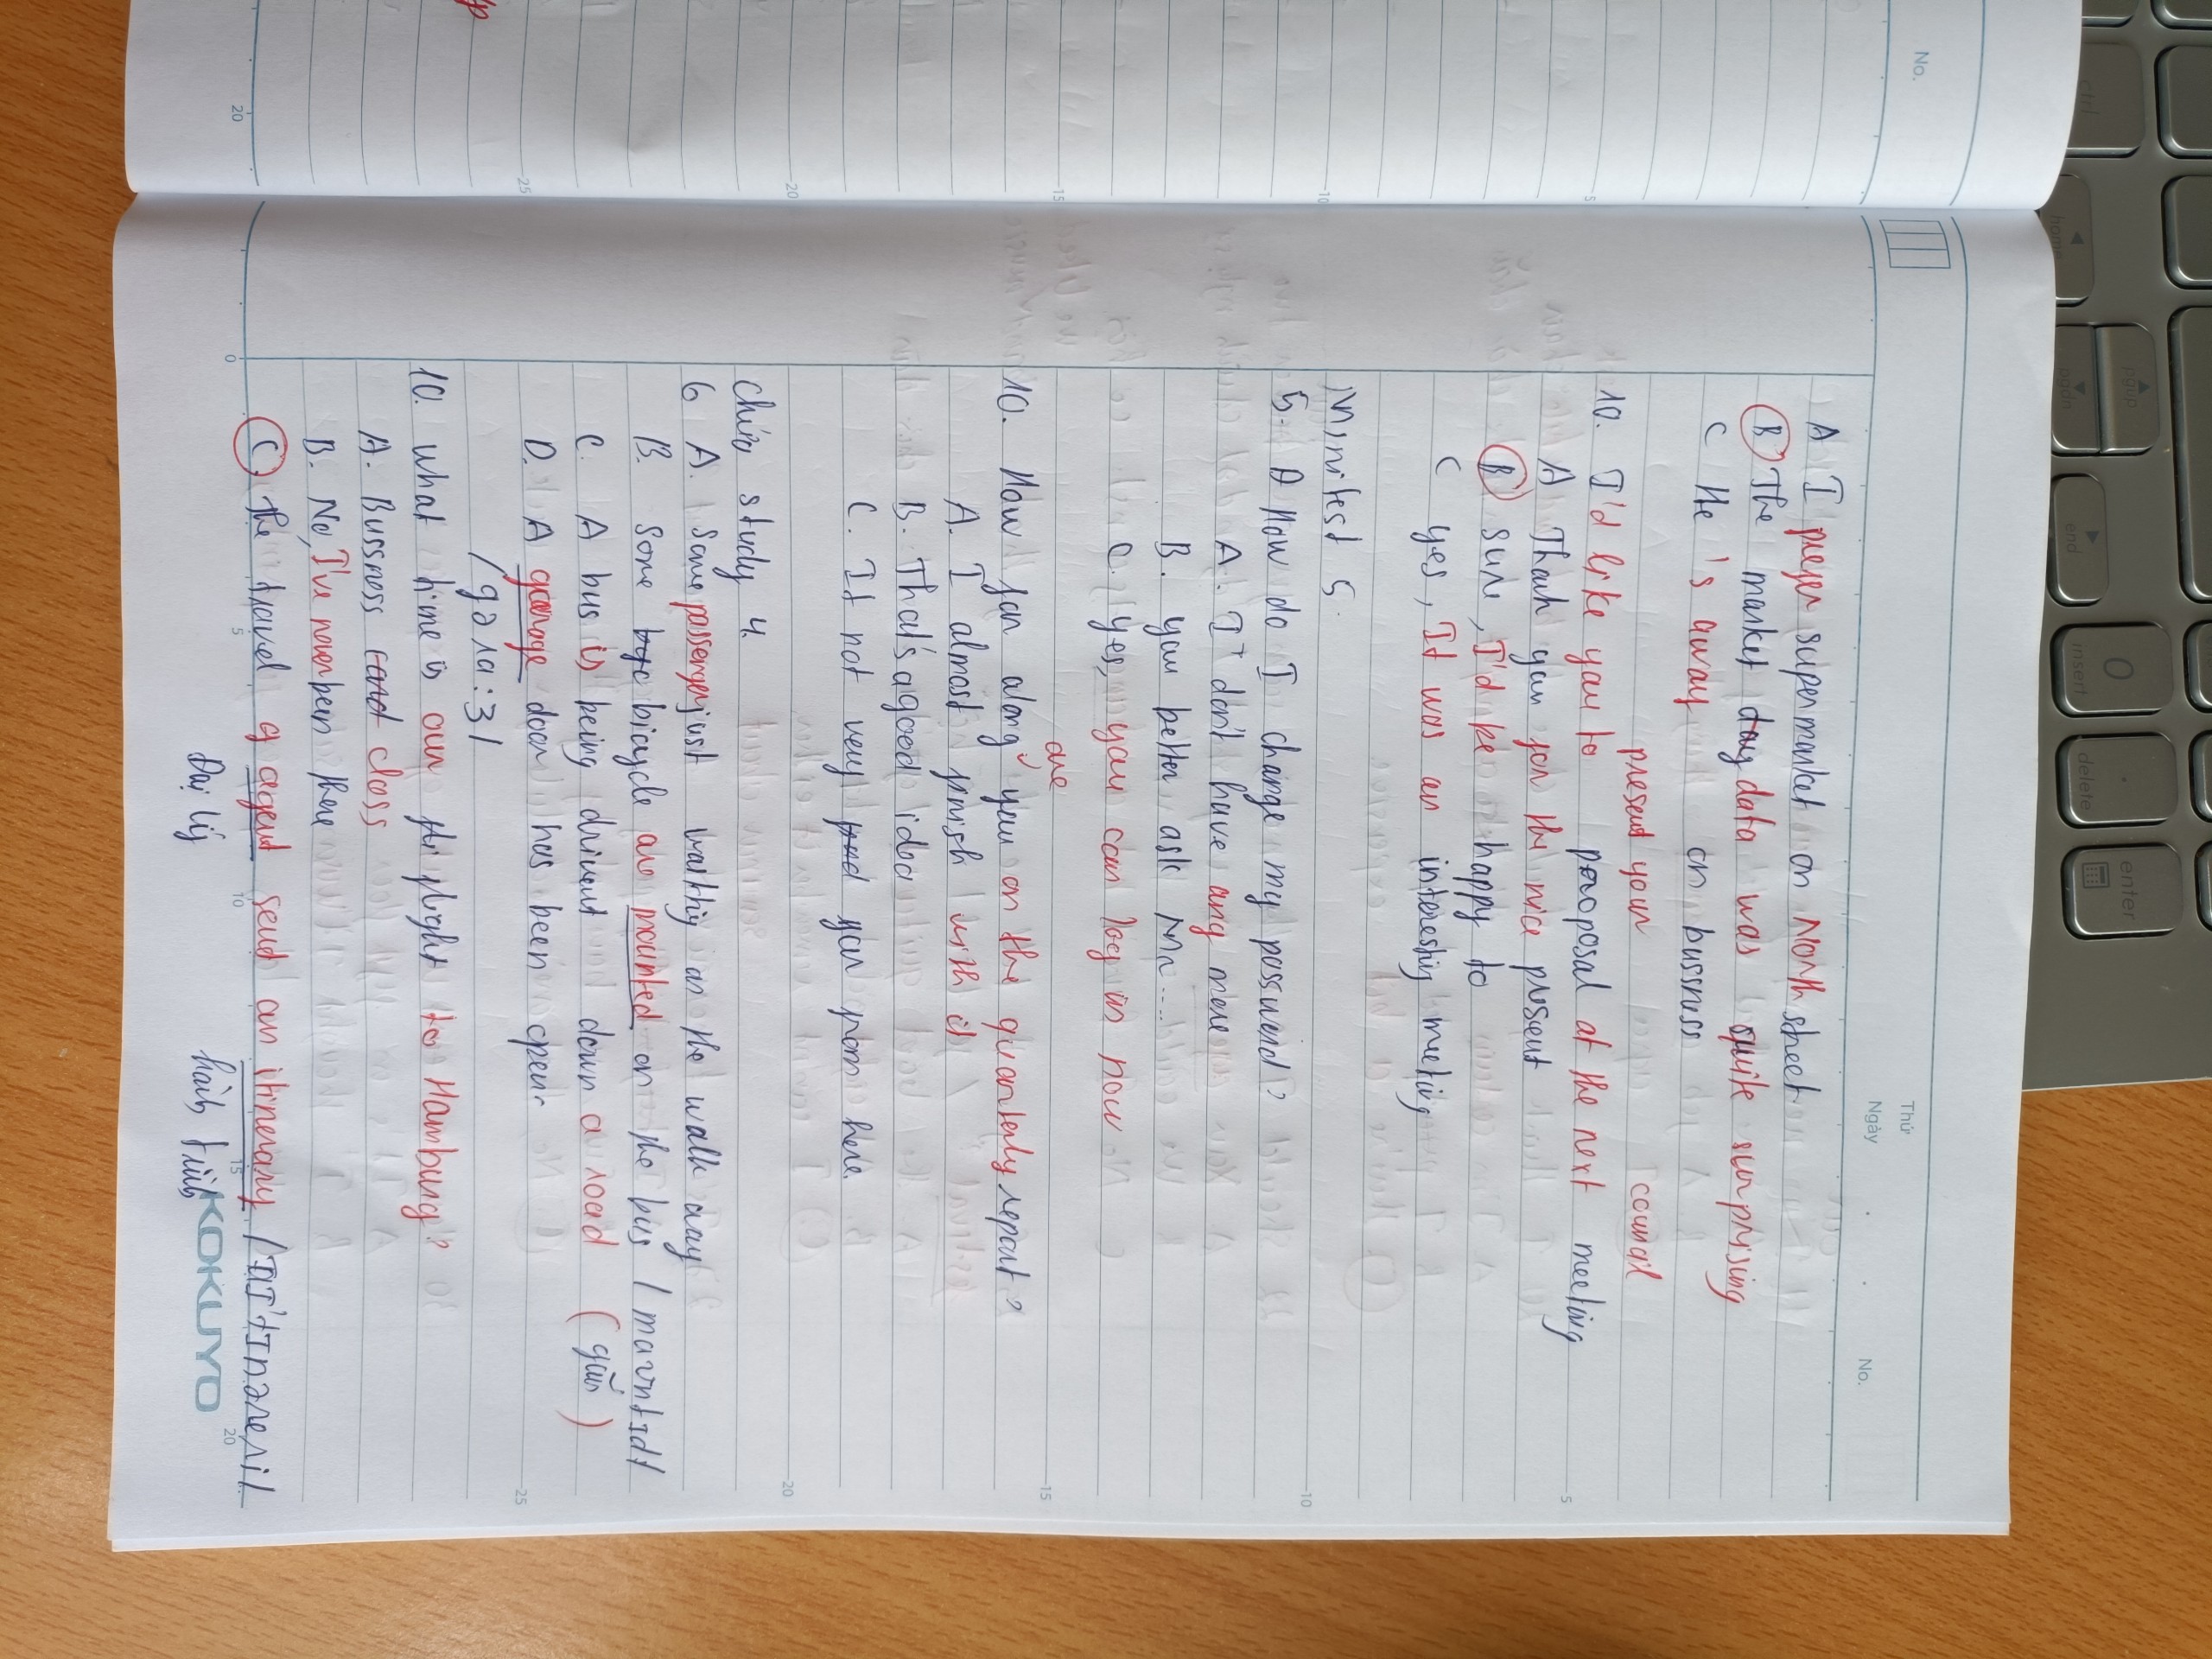 No.
Thứ
Ngày
No.
A I prefer supermarket on North street
B The market day data was quite surprising
C He 's away on bussness
present your council
10. I'd like you to proposal at the next meeting
A Thank you for the nice present
B sure, I'd be happy to
C yes, It was an interesting meeting
Minitest 5.
5. A How do I change my password?
A. I don't have any more
B. you better ask Mr....
C. yes, you can log in now
are
10. How far along you on the quarterly report?
A. I almost finish with it
B. That's a good idea
C. It not very far from here
study 4
6 A. Some passenger just walking on the walk away
B. Some bicycle are mounted on the bus /maʊntɪd/
C. A bus is being drivent down a road (gắn)
D. A garage door has been open
/gəra:ʒ/
10. what time is our fli flight to Hamburg?
A. Bussness class
B. No, I've never been there
C. The travel agent send an itinerary /aɪ'tɪnəreri/
Đại lý hành trình
KOKUYO
5
10
15
20
25
5
10
15
20
25
0
20
ctrl
home
pgup
pgdn
end
0
insert
delete
enter